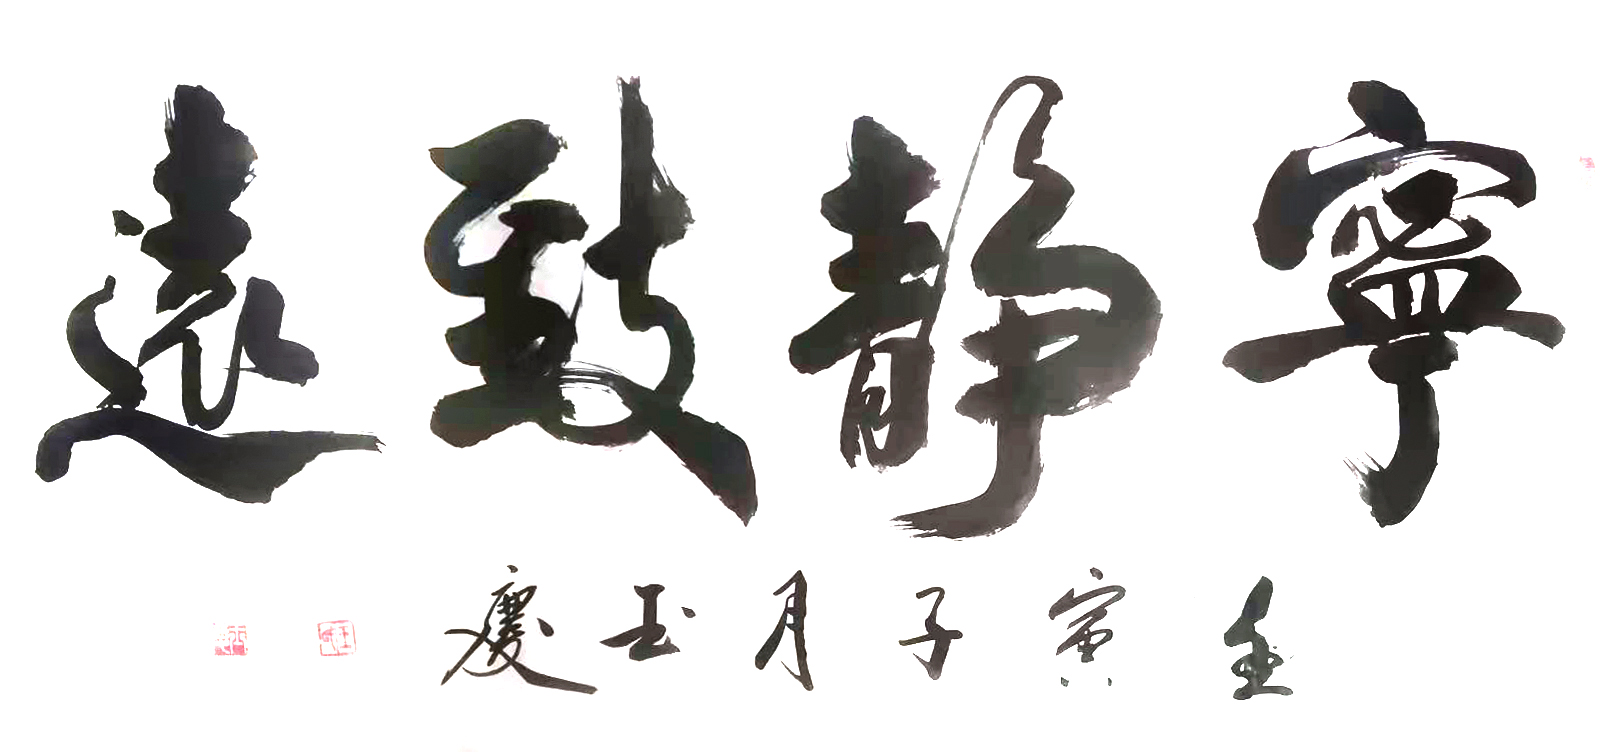 寧靜致遠
壬寅子月玉慶